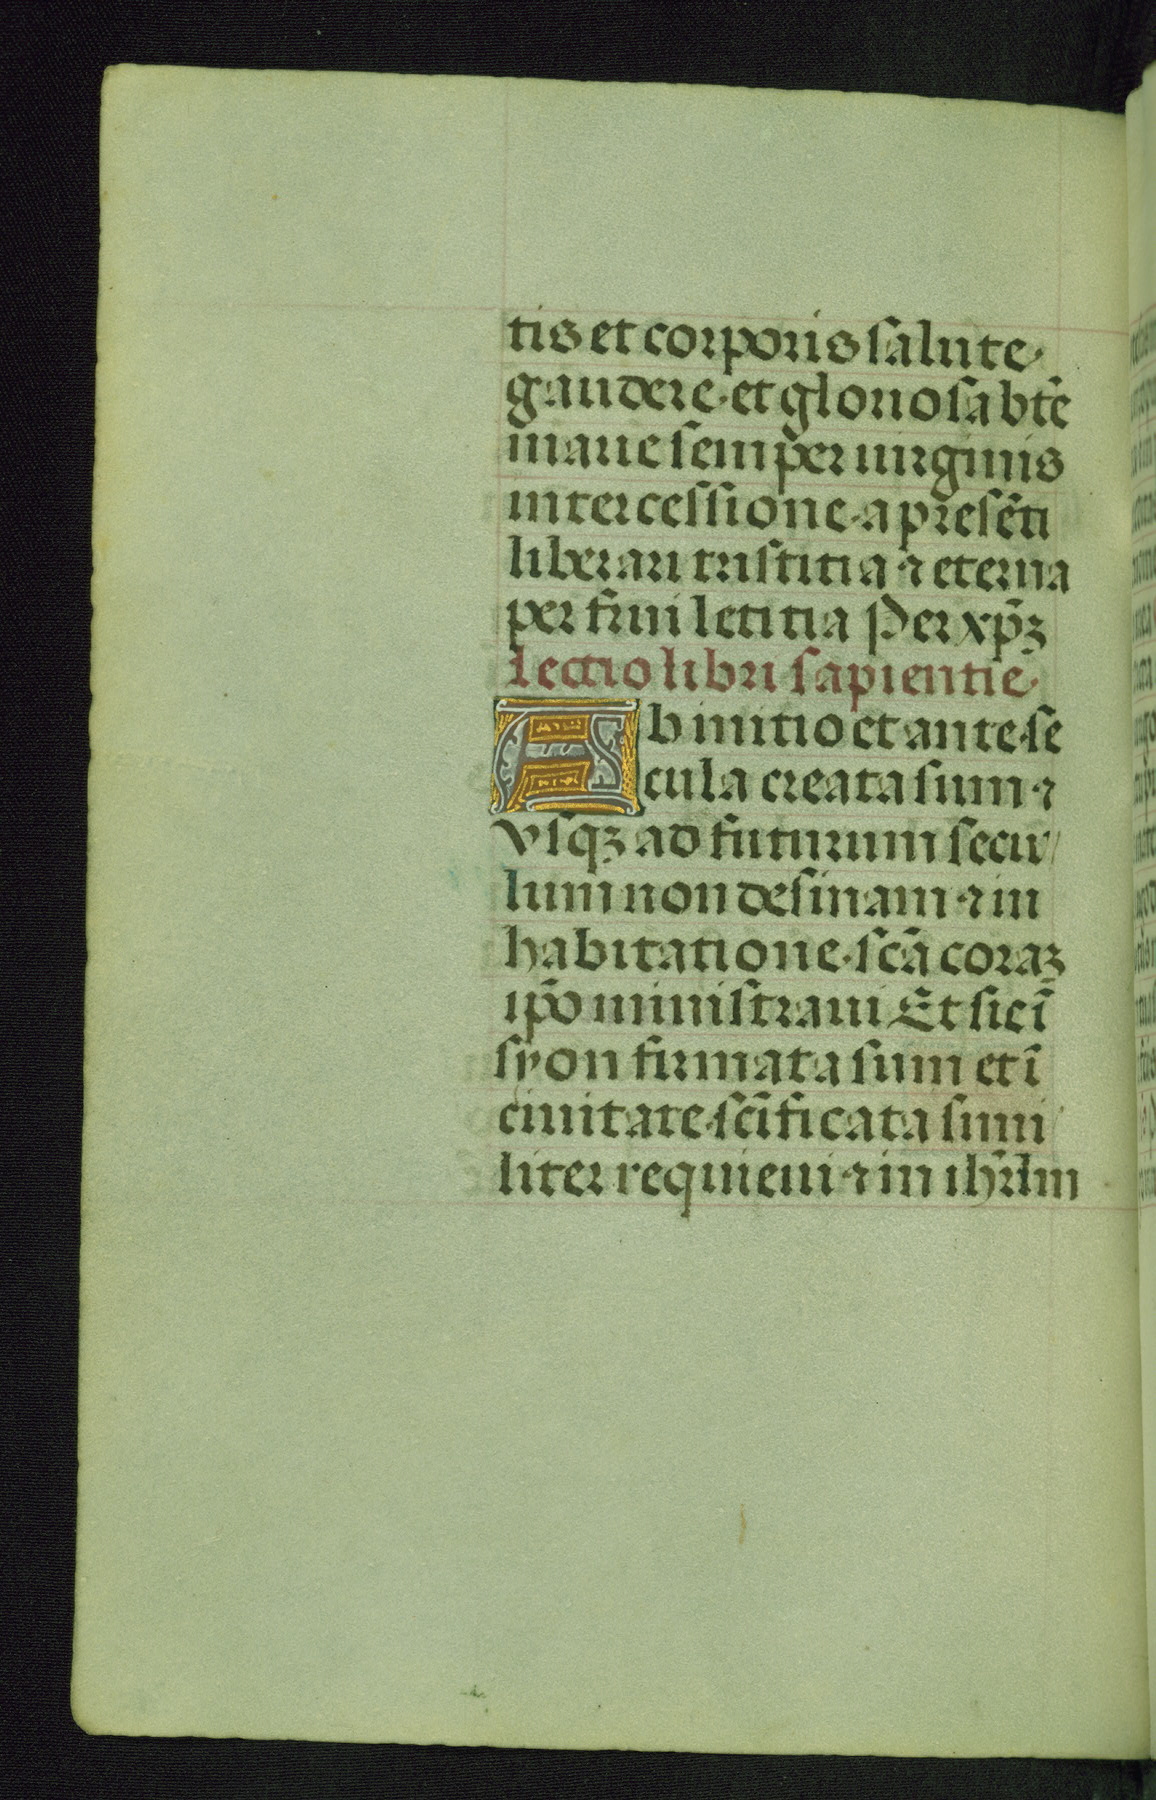 tis et corporis salute
gaudere·et gloriosa bt̄e
marie semper uirginis
intercessione·a presēti
liberari tristitia ⁊ eterna
per frui letitia Per xp̄ꝫ
Lectio libri sapientie·
Ab initio et ante·se
cula creata sum·⁊
vsqꝫ ad futurum secu/
lum non desinam·⁊ in
habitatione·sc̄a coraꝫ
ip̄o ministraui Et sic ī
syon firmata sum et ī
ciuitate·sc̄ificata simi
liter requieui·⁊ in ihr̄lm